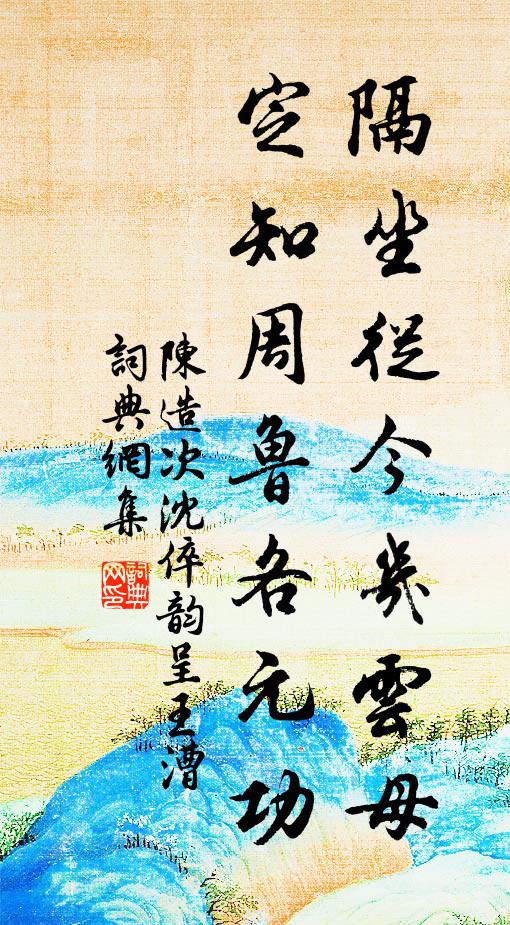 隔坐從今幾雲母
定知周魯各元功
陳造次沈倅韵呈王漕
詞典網集
詞典
网印